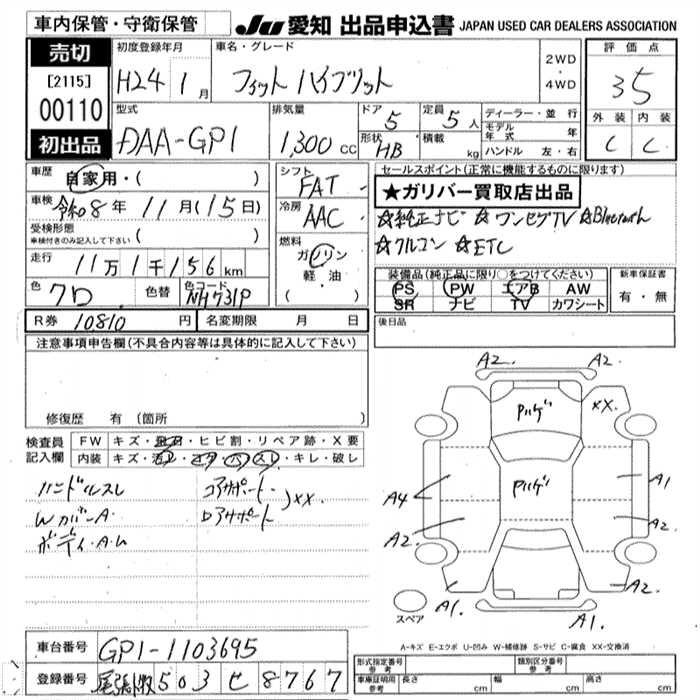 車内保管・守衛保管
JU 愛知 出品申込書 JAPAN USED CAR DEALERS ASSOCIATION
売切
[2115]
00110
初出品
初度登録年月
H24 1月
車名・グレード
フィット ハイブリット
2WD
・
4WD
評価点
3.5
外装 内装
C C
型式
DAA-GP1
排気量
1,300 CC
ドア 5
形状 HB
定員 5人
積載 kg
ディーラー・並行
モデル年式 年
ハンドル 左・右
車歴 自家用・( )
車検 令和8年11月(15日)
受検形態
車検付きのみ記入して下さい ( )
走行 11万1千156km
色 クロ 色替 色コード NH731P
シフト FAT
冷房 AAC
燃料
ガソリン
軽・油
( )
セールスポイント(正常に機能するものに限ります)
★ガリバー買取店出品
☆純正ナビ ☆ワンセグTV ☆Bluetooth
☆クルコン ☆ETC
装備品(純正品に限り○をつけてください)
PS PW エアB AW
SR ナビ TV カワシート
新車保証書
有・無
R券 10810円 名変期限 月 日
後日品
注意事項申告欄(不具合内容等は具体的に記入して下さい)
修復歴 有(箇所 )
検査員記入欄
FW キズ・ ・ヒビ割・リペア跡・X要
内装 キズ・ ・コゲ・ ・スレ・キレ・破レ
ハンドルスレ
WカバーA
ボディ.A.U
コアサポート
ロアサポート )XX.
A2. A2.
Pハゲ XX.
Pハゲ
A4 A1
A2. A2.
A1. A2.
A1.
スペア
A-キズ E-エクボ U-凹み W-補修跡 S-サビ C-腐食 XX-交換済
車台番号 GP1-1103695
登録番号 尾張小牧 503 セ 8767
形式指定番号 参考
類別区分番号 参考
車庫証明用 参考 長さ cm 幅 cm 高さ cm